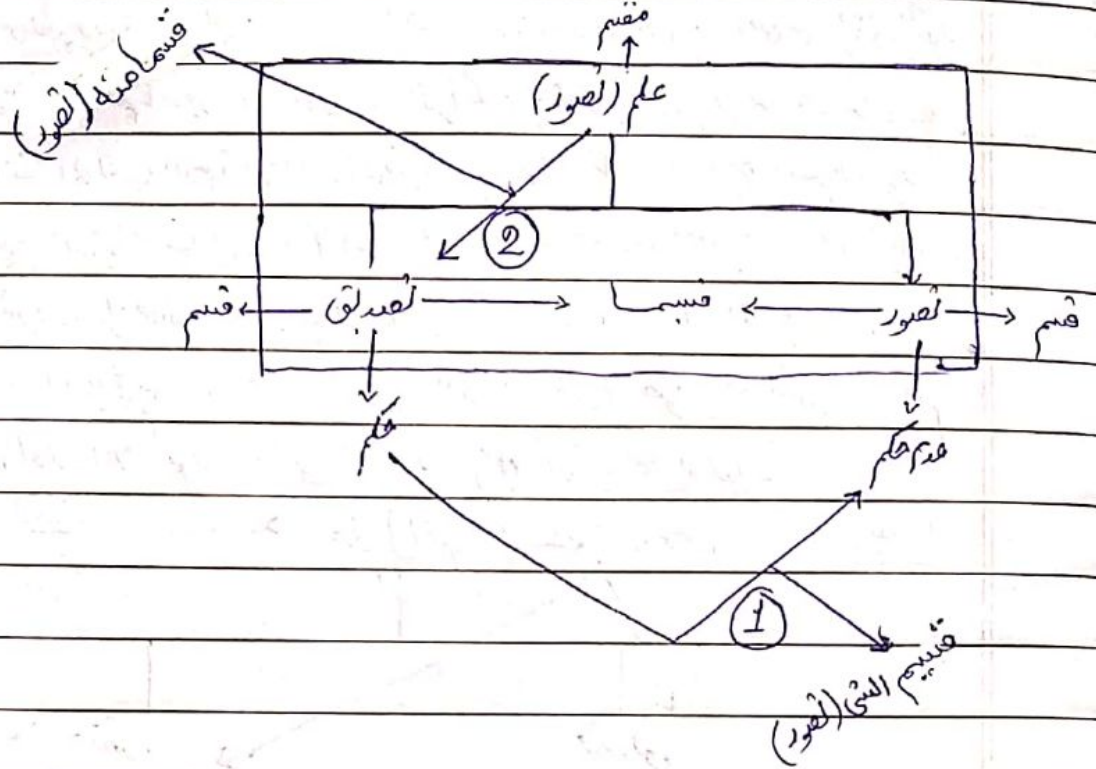 مقسم
علم (تصور)
قسما منه (تصور)
2
قسم
تصور
قسیما
تصدیق
قسم
عدم حکم
حکم
1
قسیم الشئ (تصور)